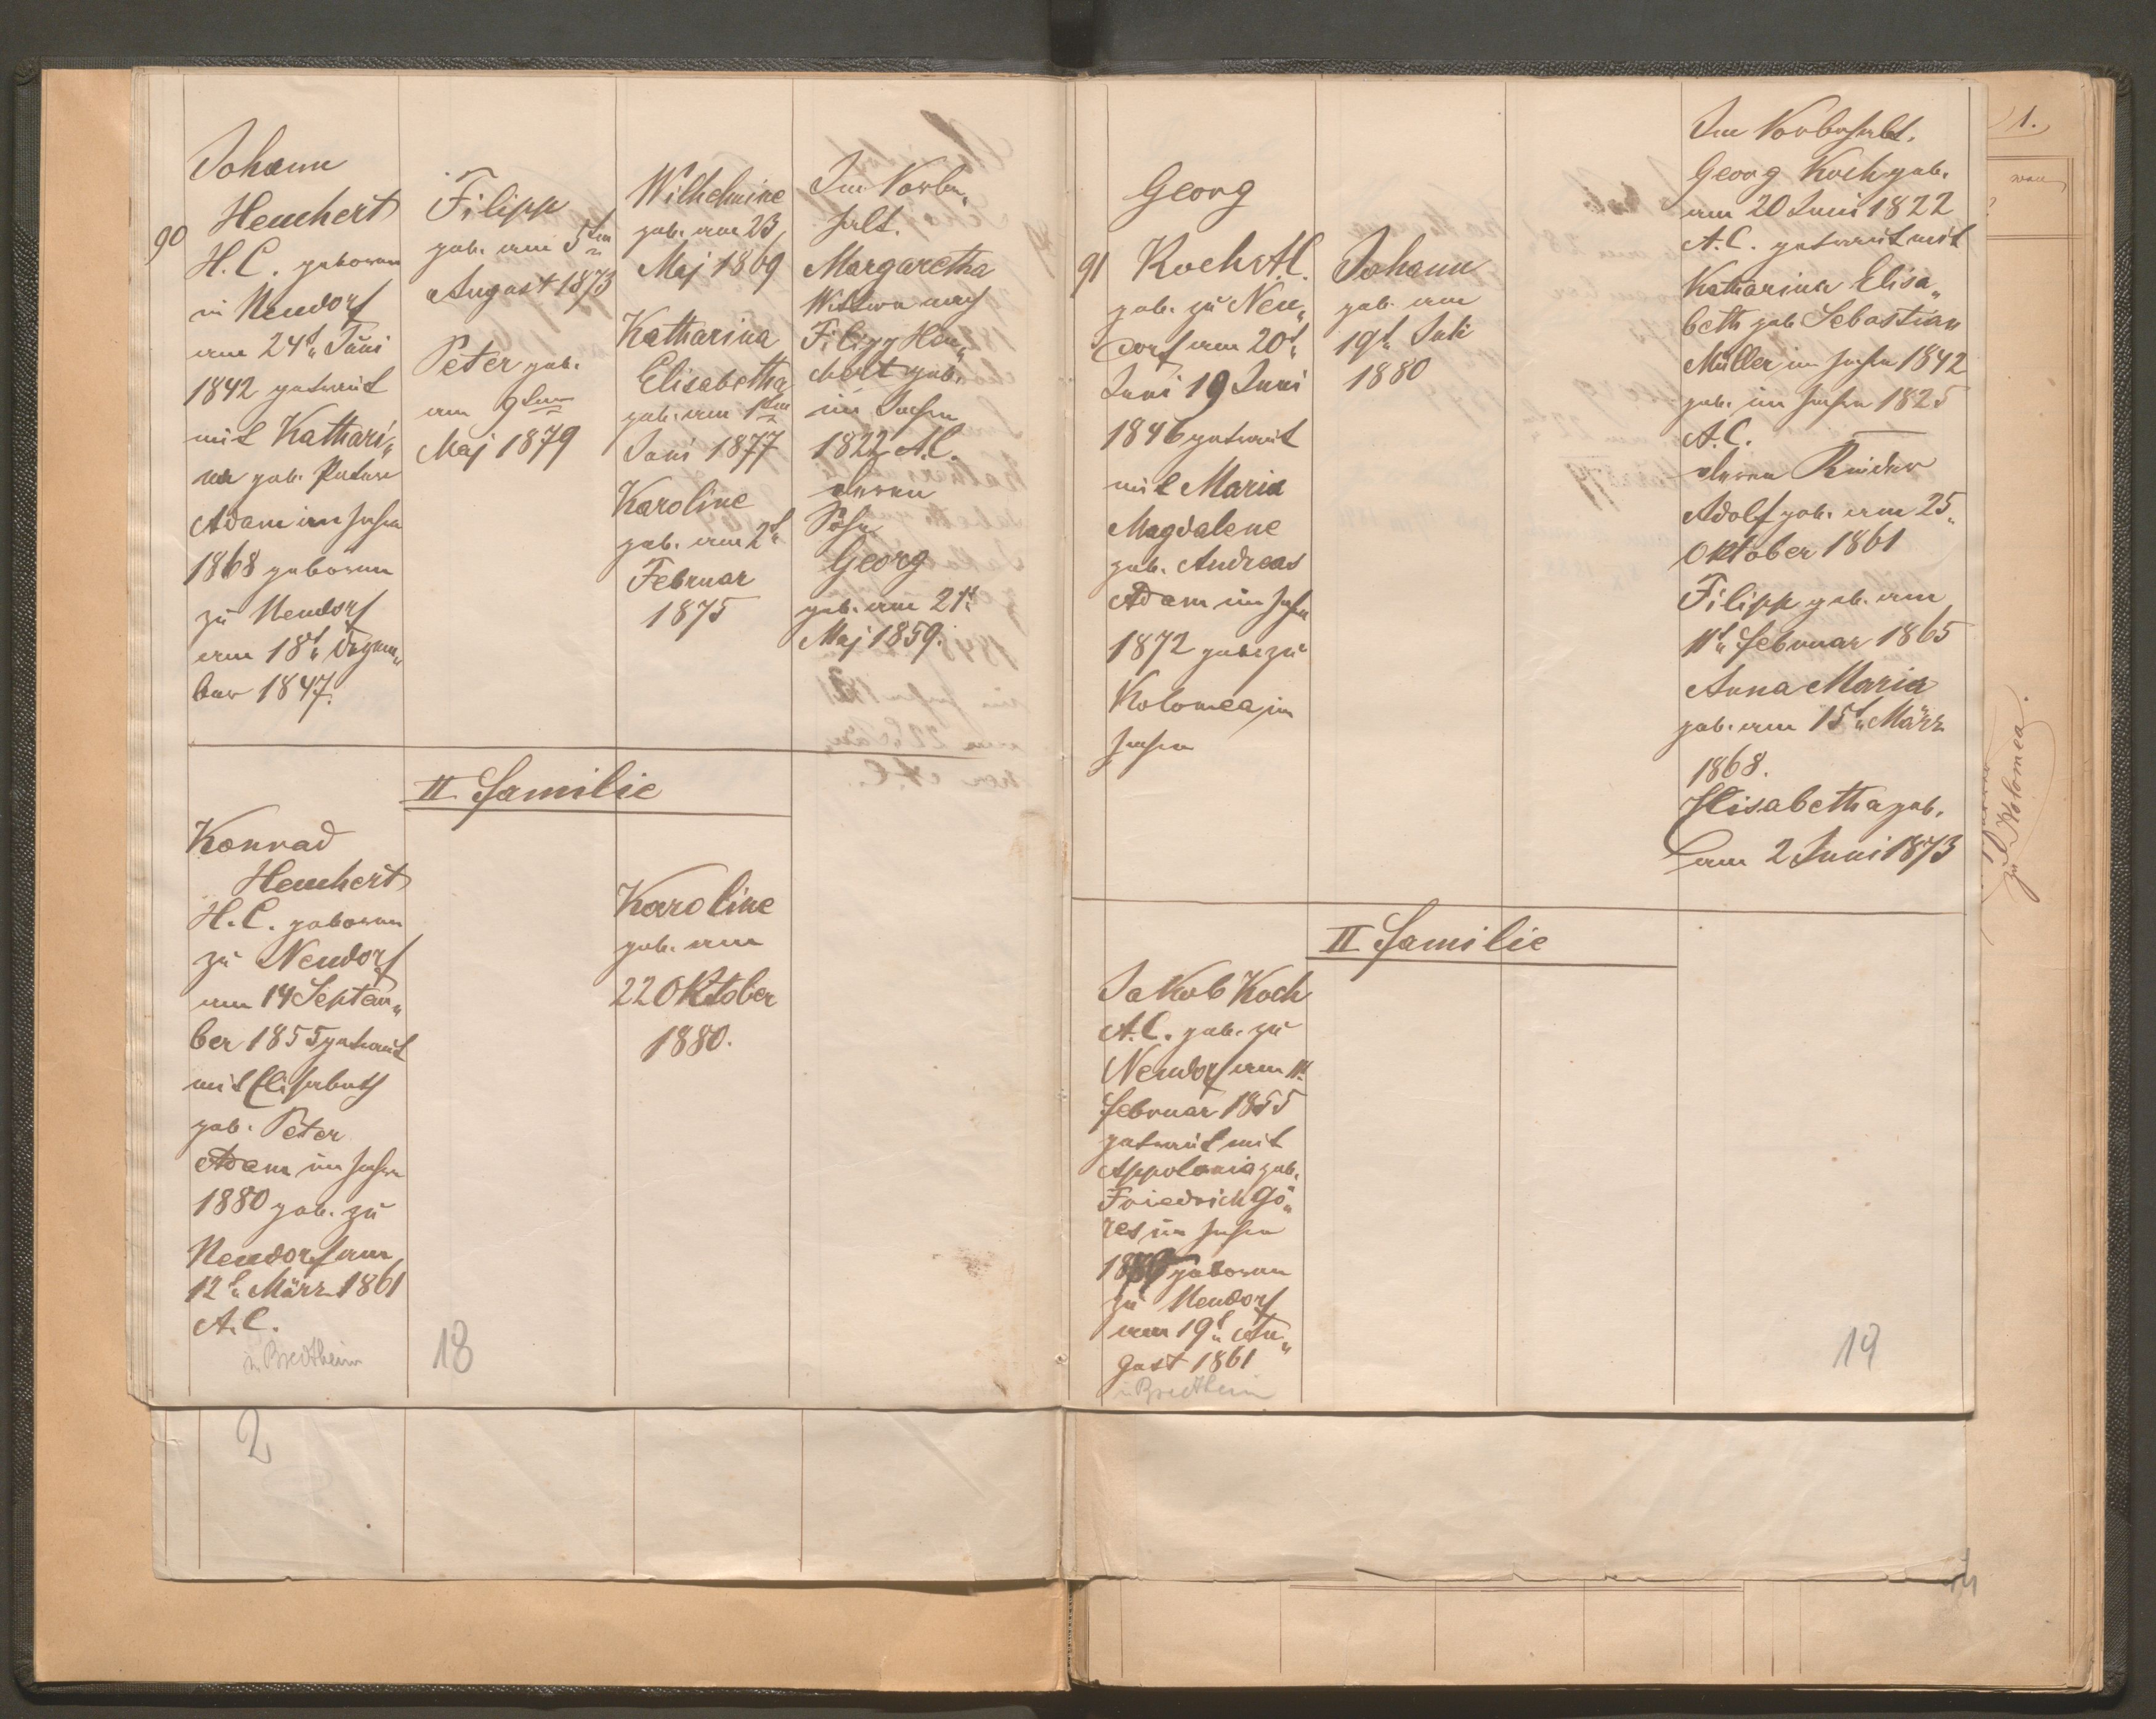 90
Johann
Heuchert
H. C. geboren
in Neudorf
am 24t„ Juni
1842 getraut
mit Kathari„
na geb. Peter
Adam im Jahre
1868 geboren
zu Neudorf
am 18t„ Dezem„
ber 1847.
Filipp
geb. am 5ten
August 1873
Peter geb.
am 9ten
Maj 1879
Wilhelmine
geb. am 23
Maj 1869
Katharina
Elisabetha
geb. am 1ten
Juni 1877
Karoline
geb. am 2t
Februar
1875
Im Vorbe„
halt.
Margaretha
Wittwe nach
Filipp Heu„
chert geb.
im Jahre
1822 A.C.
deren
Sohn
Georg
geb. am 21t
Maj 1859.
II Familie
Konrad
Heuchert
H. C. geboren
zu Neudorf
am 14 Septem„
ber 1855 getraut
mit Elisabeth
geb. Peter
Adam im Jahre
1880 geb. zu
Neudorf am
12t„ März 1861
A. C.
in Bredtheim
Karoline
geb. am
22 Oktober
1880.
18
2
91
Georg
Koch A.C.
geb. zu Neu„
dorf am 20t„
Juni 19 Juni
1846 getraut
mit Maria
Magdalene
geb. Andreas
Adam im Jahre
1872 geb. zu
Kolomea im
Jahre
Johann
geb. am
19t„ Juli
1880
Im Vorbehalt.
Georg Koch geb.
am 20 Juni 1822
A. C. getraut mit
Katharina Elisa„
beth geb. Sebastian
Müller im Jahre 1842
geb. im Jahre 1825
A. C.
deren Kinder
Adolf geb. am 25„
Oktober 1861
Filipp geb. am
11t„ Februar 1865
Anna Maria
geb. am 15t„ März
1868.
Elisabetha geb.
am 2 Juni 1873
II Familie
Jakob Koch
A. C. geb. zu
Neudorf am 11t
Februar 1855
getraut mit
Appolonia geb.
Friedrich Gö„
res im Jahre
geboren
zu Neudorf
am 19t„ Au„
gust 1861
in Bredtheim
19
1.
zu Kolomea.